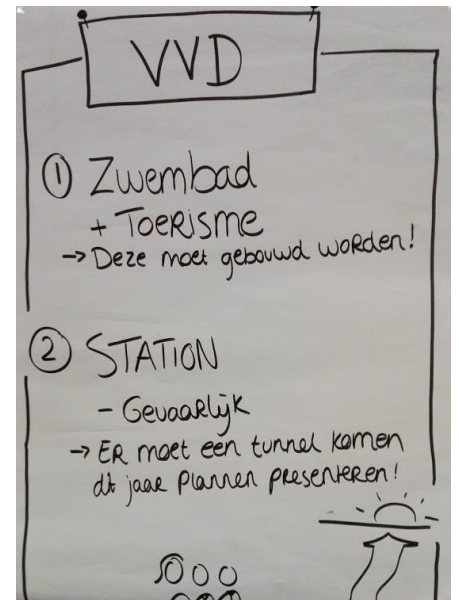 VVD
① Zwembad
+ Toerisme
→ Deze moet gebouwd worden!
② STATION
- Gevaarlijk
→ ER moet een tunnel komen
dit jaar Plannen presenteren!